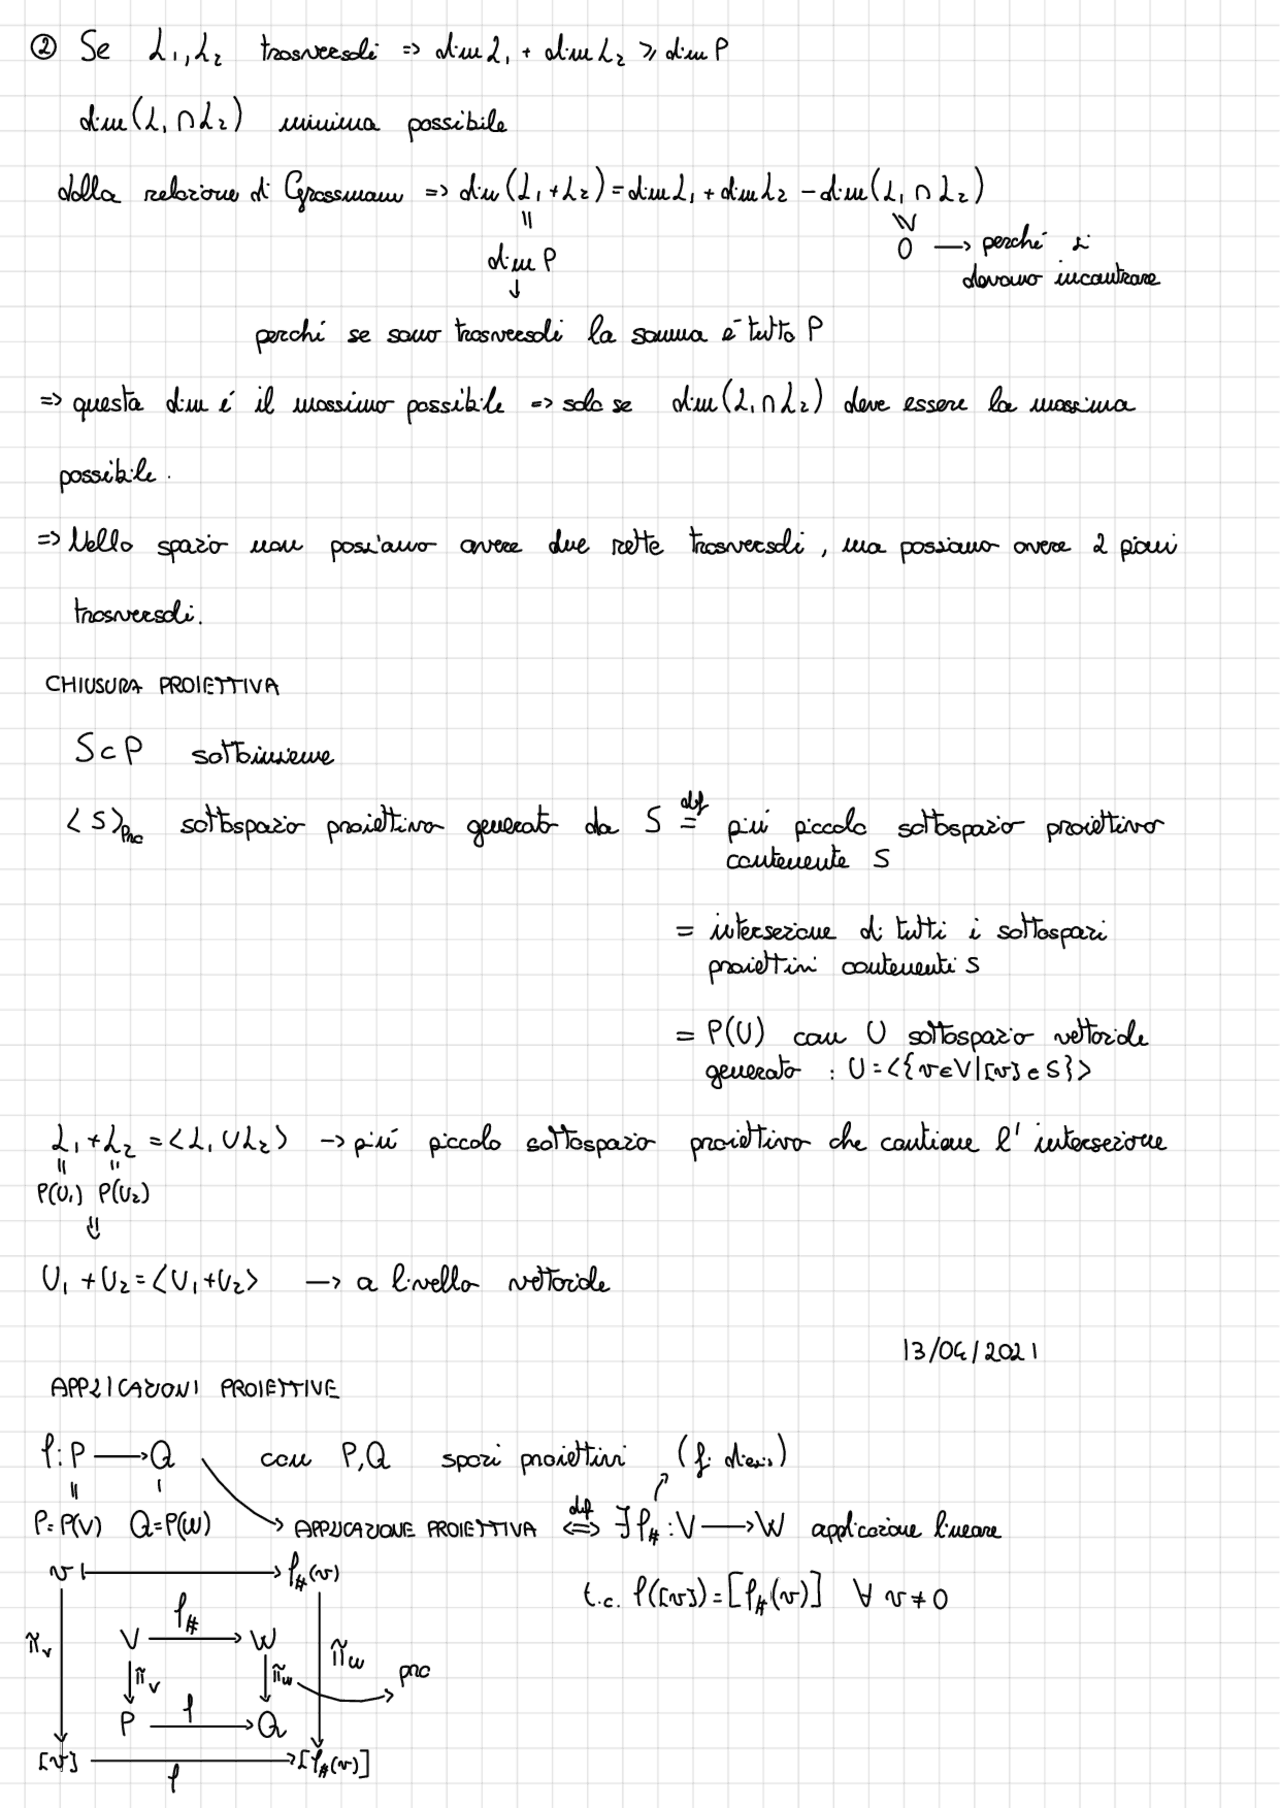 ② Se L₁, L₂ trasversali => dim L₁ + dim L₂ ⩾ dim P
dim (L₁ ∩ L₂) minima possibile
dalla relazione di Grassmann => dim (L₁ + L₂) = dim L₁ + dim L₂ - dim (L₁ ∩ L₂)
|| \/ 
dim P 0 → perché si
↓ devono incontrare
perché se sono trasversali la somma è tutto P
=> questa dim é il massimo possibile => solo se dim (L₁ ∩ L₂) deve essere la massima
possibile.
=> Nello spazio non possiamo avere due rette trasversali, ma possiamo avere 2 piani
trasversali.
CHIUSURA PROIETTIVA
S ⊂ P sottoinsieme
<S>Pro sottospazio proiettivo generato da S =def piú piccolo sottospazio proiettivo
contenente S
= intersezione di tutti i sottospazi
proiettivi contenenti S
= P(U) con U sottospazio vettoriale
generato : U = <{v ∈ V | [v] ∈ S}>
L₁ + L₂ = <L₁ ∪ L₂> → piú piccolo sottospazio proiettivo che contiene l' intersezione
|| ||
P(U₁) P(U₂)
⇓
U₁ + U₂ = <U₁ + U₂> → a livello vettoriale
13/04/2021
APPLICAZIONI PROIETTIVE
f : P → Q con P, Q spazi proiettivi
|| |
P = P(V) Q = P(W) → APPLICAZIONE PROIETTIVA ⇔def ∃ f# : V → W applicazione lineare
v ↦ f#(v)
t.c. f([v]) = [f#(v)] ∀ v ≠ 0
f#
πv V → W πw
πv πw pro
f
P → Q
[v] → [f#(v)]
f